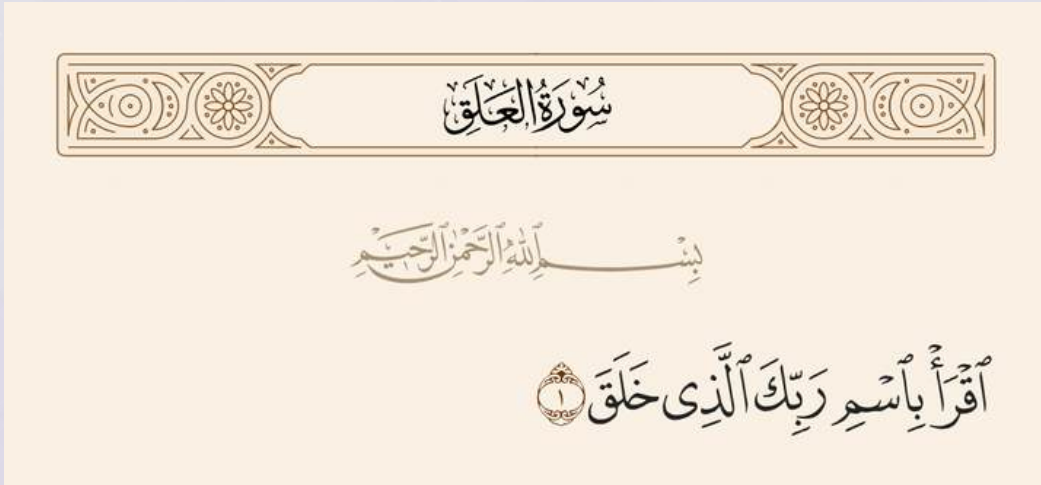 سُورَةُ العَلَقِ
بِسْمِ ٱللَّهِ ٱلرَّحْمَٰنِ ٱلرَّحِيمِ
ٱقْرَأْ بِٱسْمِ رَبِّكَ ٱلَّذِى خَلَقَ ١